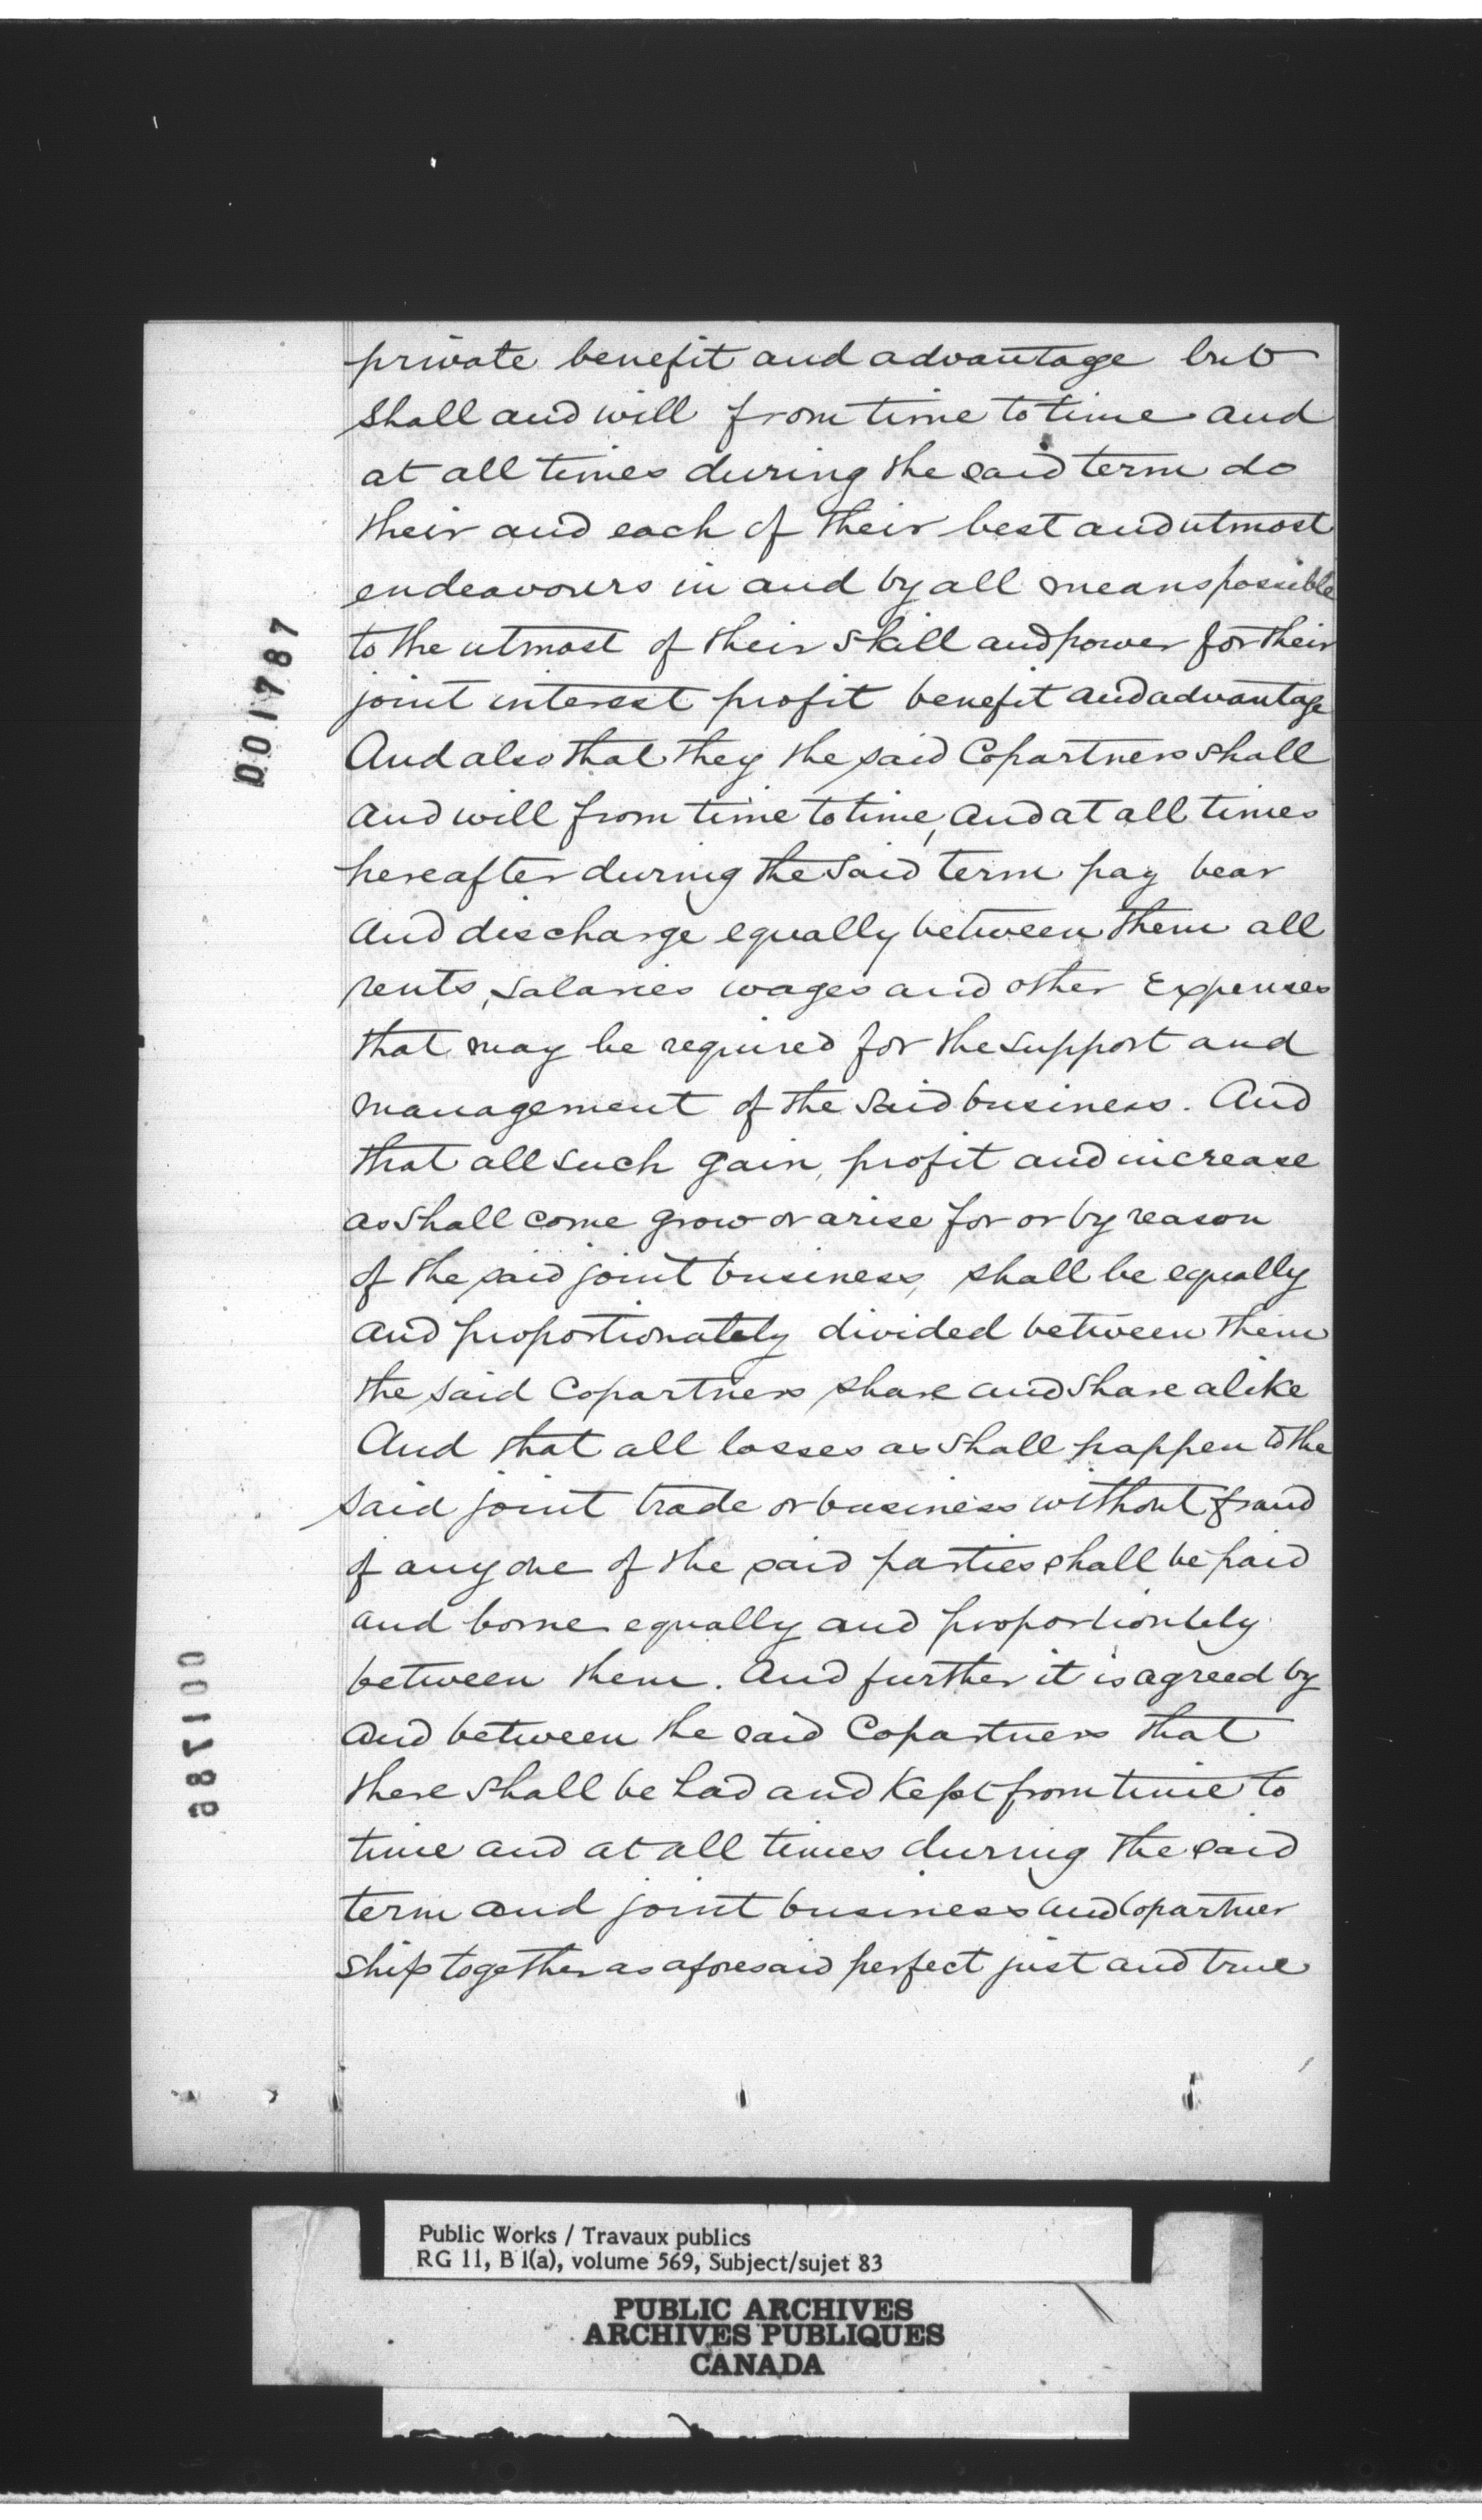 private benefit and advantage but
shall and will from time to time and
at all times during the said term do
their and each of their best and utmost
endeavours in and by all means possible
to the utmost of their skill and power for their
joint interest profit benefit and advantage
And also that they the said Copartners shall
and will from time to time, and at all times
hereafter during the said term pay bear
and discharge equally between them all
rents, salaries wages and other Expenses
that may be required for the support and
management of the said business. And
that all such gain, profit and increase
as shall come grow or arise for or by reason
of the said joint business, shall be equally
and proportionately divided between them
the said Copartners share and share alike
And that all losses as shall happen to the
said joint trade or business without fraud
of any one of the said parties shall be paid
and borne equally and proportiontely
between them. And further it is agreed by
and between the said Copartners that
there shall be had and kept from time to
time and at all times during the said
term and joint business and Copartner
ship together as aforesaid perfect just and true
001787
001786
Public Works / Travaux publics
RG 11, B 1(a), volume 569, Subject/sujet 83
PUBLIC ARCHIVES
ARCHIVES PUBLIQUES
CANADA